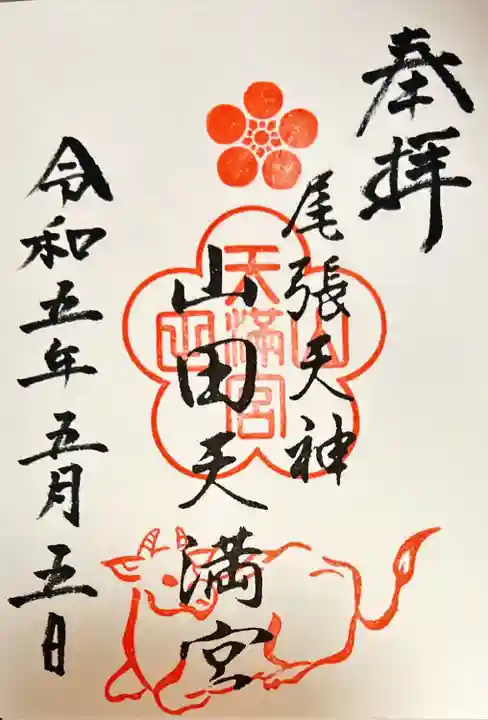 奉拝
尾張天神
山田天満宮
天満宮
山
田
令和五年五月五日